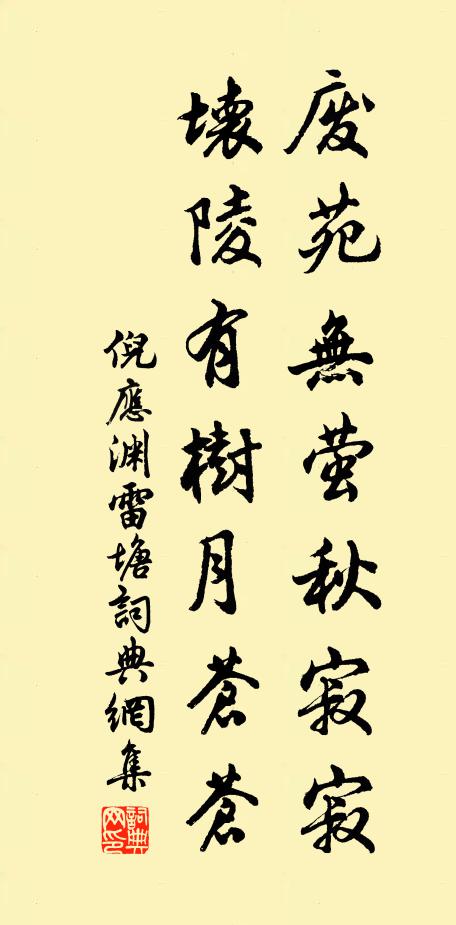 废苑無萤秋寂寂
壊陵有樹月蒼蒼
倪應渊雷塘詞典網集
詞典網印